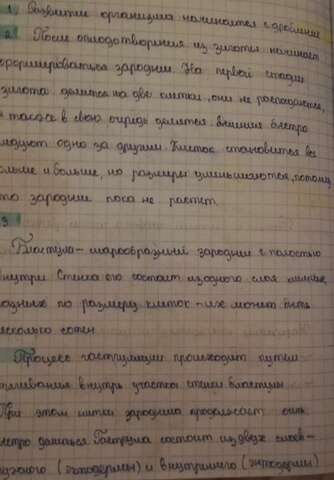 1. Развитие организма начинается с дробления
2. После оплодотворения из зиготы начинает
формироваться зародыш. На первой стадии
зигота делится на две клетки, они не расходятся,
а также в свою очередь делятся. Деления быстро
следуют одно за другим. Клеток становится все
больше и больше, но размеры уменьшаются, потому
что зародыш пока не растет.
3
Бластула – шарообразный зародыш с полостью
внутри. Стенка его состоит из одного слоя
по размеру клеток – их может быть
несколько сотен.
Процесс гаструляции происходит путем
впячивания внутрь участка стенки бластулы
При этом клетки зародыша продолжают очень
быстро делиться. Гаструла состоит из двух слоев –
наружного (эктодермы) и внутреннего (энтодермы)